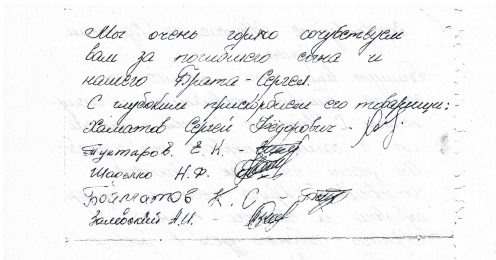 Мы очень горько сочувствуем
вам за погибшего сына и
нашего Брата - Сергея.
С глубоким прискорбием его товарищи:
Хаматов Сергей Фёдорович
Тухтаров. Е. Н. -
Шаоелко Н. Ф.
Боймагов К. С -
Залевский А.И. -